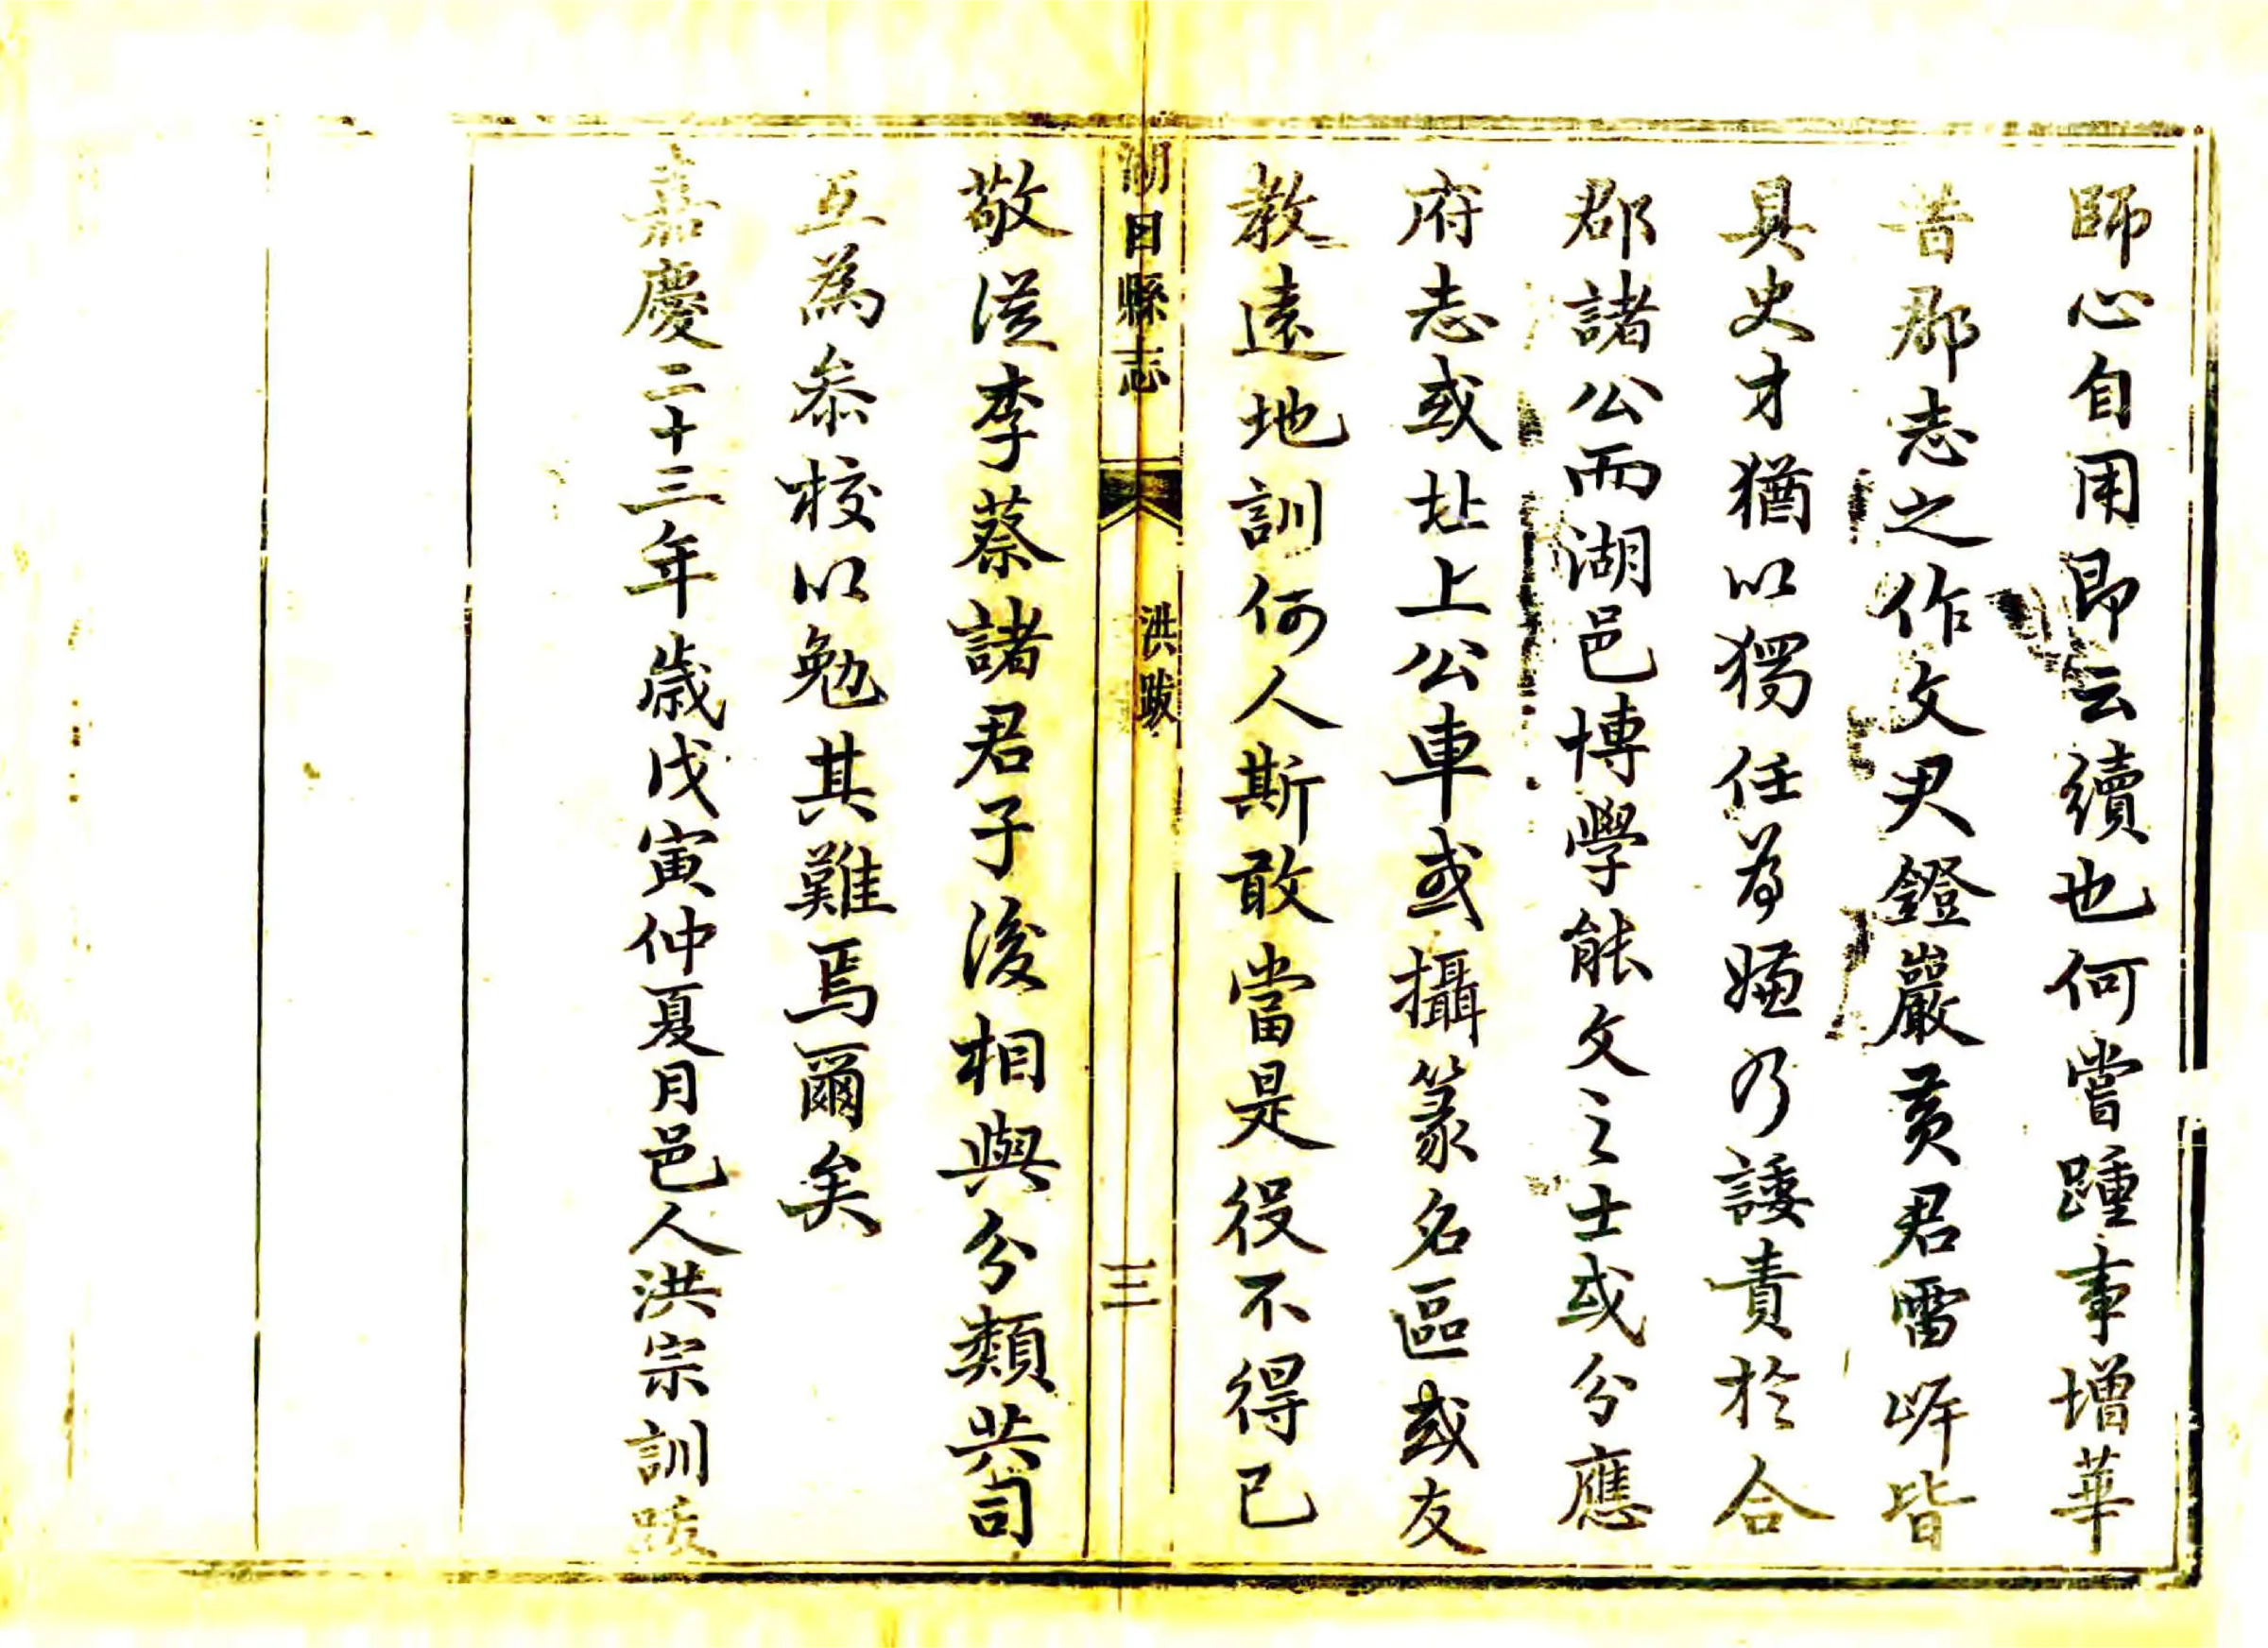 師心自用即云續也何嘗踵事增華
昔郡志之作文尹鐙巖黃君雷岍皆
具史才猶以獨任為嫌乃諉責於合
郡諸公而湖邑博學能文之士或分應
府志或赴上公車或攝篆名區或友
教遠地訓何人斯敢當是役不得已
湖口縣志
洪跋
三
敬從李蔡諸君子後相與分類共司
互為叅校以勉其難焉爾矣
嘉慶二十三年歲戊寅仲夏月邑人洪宗訓跋